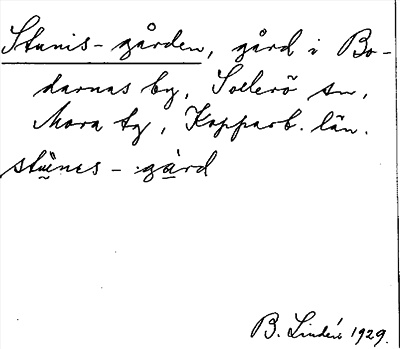 Stanis-gården, gård i Bo-
darnas by, Sollerö sn,
Mora tg, Kopparb. län.
stànes-gård
B. Lindén 1929.